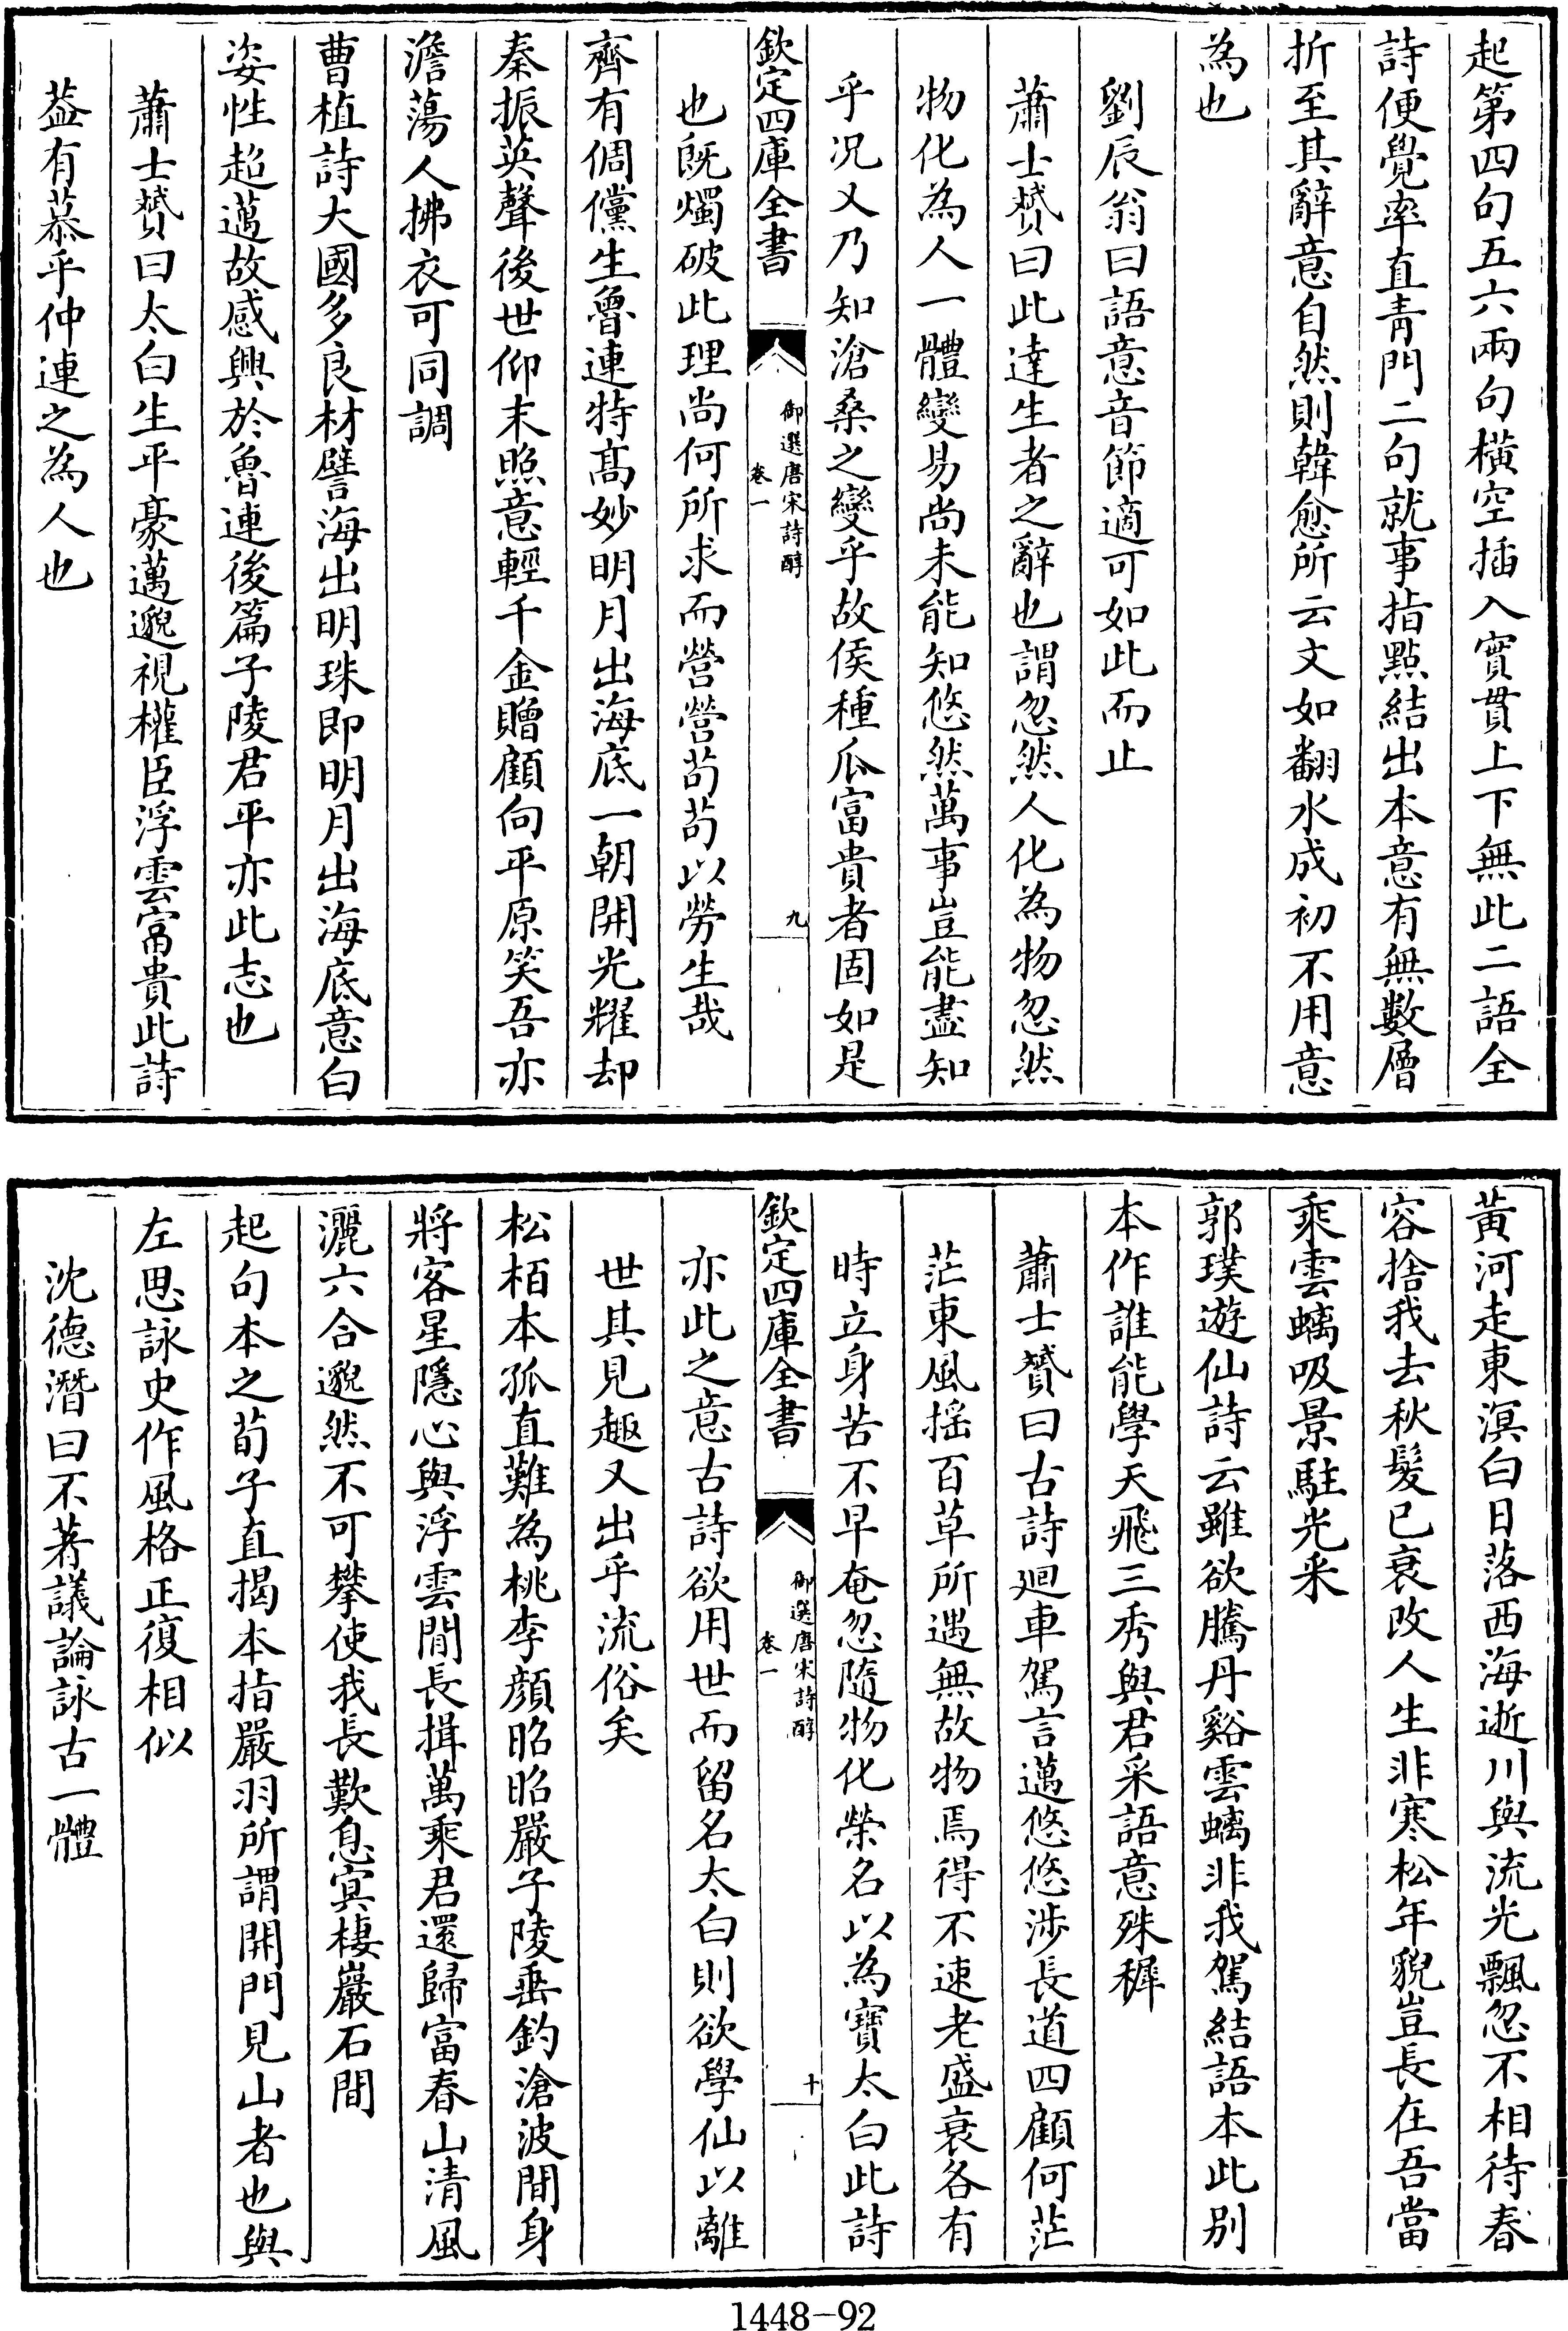 起第四句五六兩句橫空插入實貫上下無此二語全
詩便覺率直青門二句就事指點結出本意有無數層
折至其辭意自然則韓愈所云文如翻水成初不用意
為也
劉辰翁曰語意音節適可如此而止
蕭士贇曰此達生者之辭也謂忽然人化為物忽然
物化為人一體變易尚未能知悠悠萬事豈能盡知
乎况又乃知滄桑之變乎故侯種瓜富貴者固如是
欽定四庫全書
御選唐宋詩醇
卷一
九
也既燭破此理尚何所求而營營茍茍以勞生哉
齊有倜儻生魯連特髙妙明月出海底一朝開光耀却
秦振英聲後世仰末照意輕千金贈顧向平原笑吾亦
澹蕩人拂衣可同調
曹植詩大國多良材譬海出明珠即明月出海底意白
姿性超邁故感興於魯連後篇子陵君平亦此志也
蕭士贇曰太白生平豪邁邈視權臣浮雲富貴此詩
葢有慕乎仲連之為人也
黃河走東溟白日落西海逝川與流光飄忽不相待春
容捨我去秋髮已衰改人生非寒松年貌豈長在吾當
乘雲螭吸景駐光采
郭璞遊仙詩云雖欲騰丹谿雲螭非我駕結語本此別
本作誰能學天飛三秀與君采語意殊穉
蕭士贇曰古詩廻車駕言邁悠悠涉長道四顧何茫
茫東風揺百草所遇無故物焉得不速老盛衰各有
時立身苦不早奄忽隨物化榮名以為寶太白此詩
欽定四庫全書
御選唐宋詩醇
卷一
十
亦此之意古詩欲用世而留名太白則欲學仙以離
世其見趣又出乎流俗矣
松栢本孤直難為桃李顔昭昭嚴子陵垂釣滄波間身
將客星隱心與浮雲閒長揖萬乘君還歸富春山清風
灑六合邈然不可攀使我長歎息㝠棲巖石間
起句本之荀子直揭本指嚴羽所謂開門見山者也與
左思詠史作風格正復相似
沈德潛曰不著議論詠古一體
1448-92